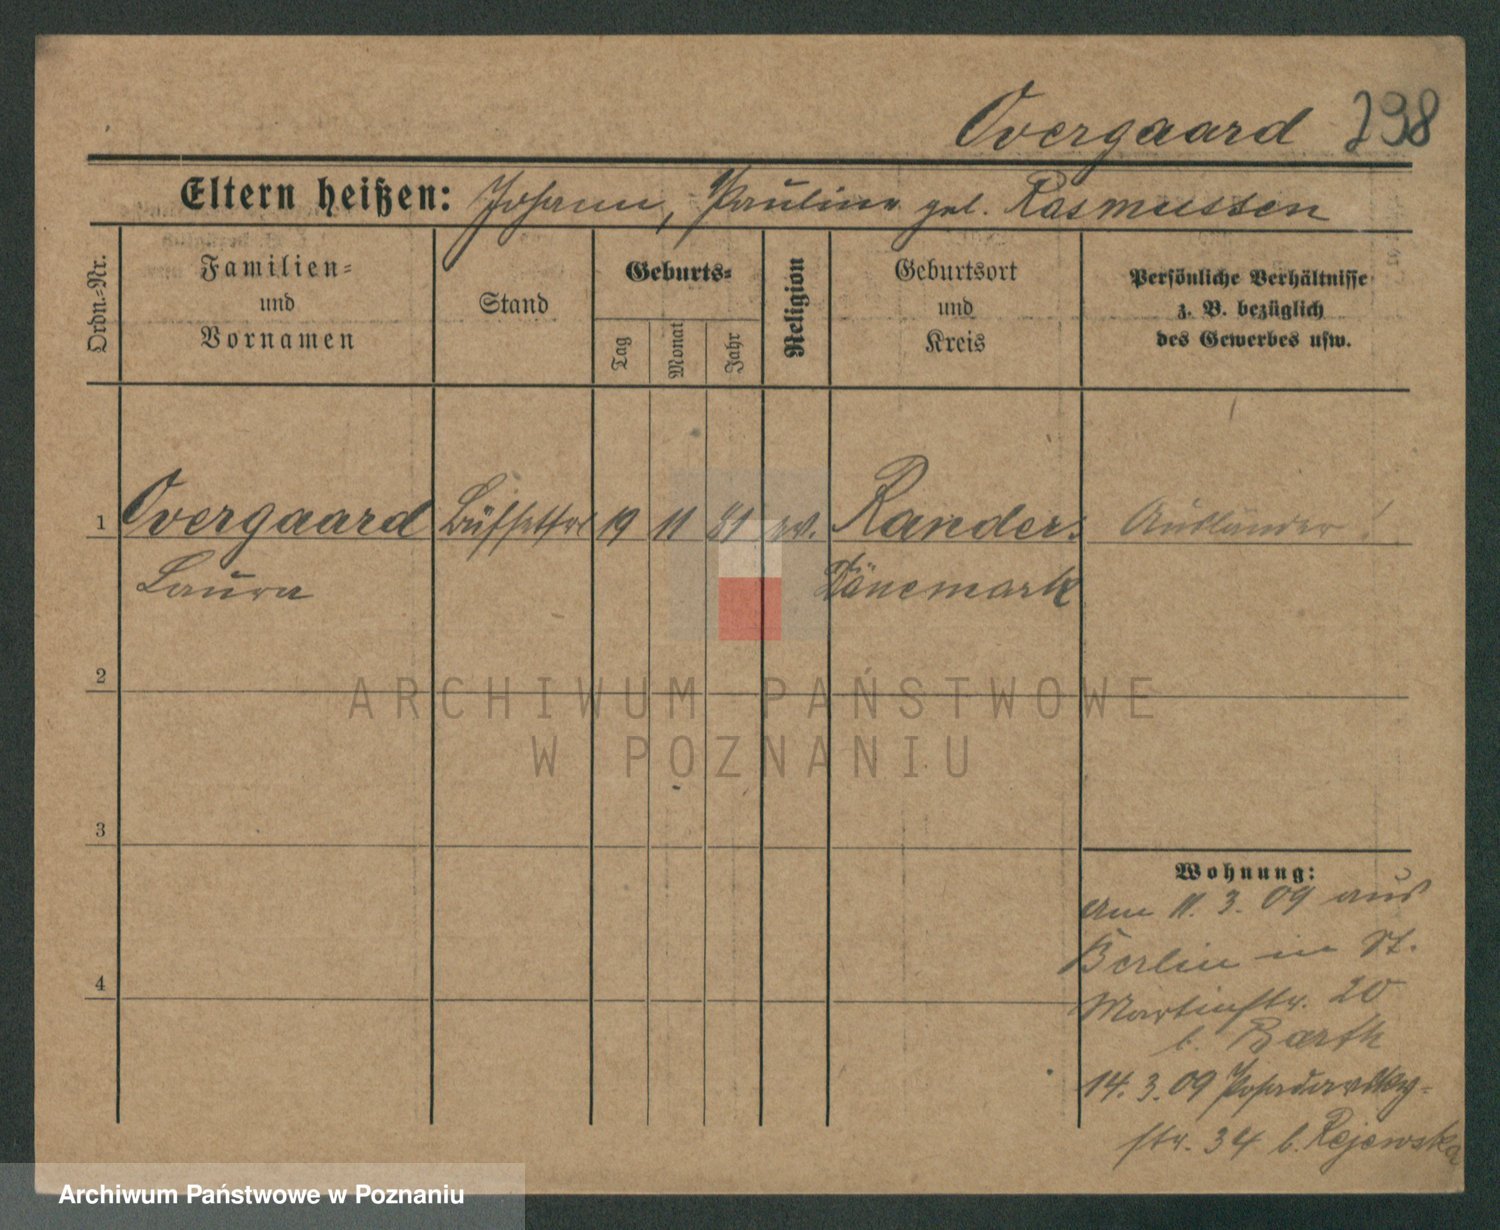 Overgaard 798
Eltern heißen: Johann, Pauline geb. Rasmussen
Ordn.-Nr.
Familien-
und
Vornamen
Stand
Geburts-
Tag
Monat
Jahr
Religion
Geburtsort
und
Kreis
Persönliche Verhältnisse
z. B. bezüglich
des Gewerbes usw.
1 Overgaard Büffettfrl 19 11 81 ev. Randers Ausländer!
Laura Dänemark
2
ARCHIWUM PAŃSTWOWE
W POZNANIU
3
Wohnung:
am 11. 3. 09 aus
Berlin in St.
4
Martinstr. 20
b. Barth
14. 3. 09 Posadowsky-
str. 34 b. Rejewska
Archiwum Państwowe w Poznaniu